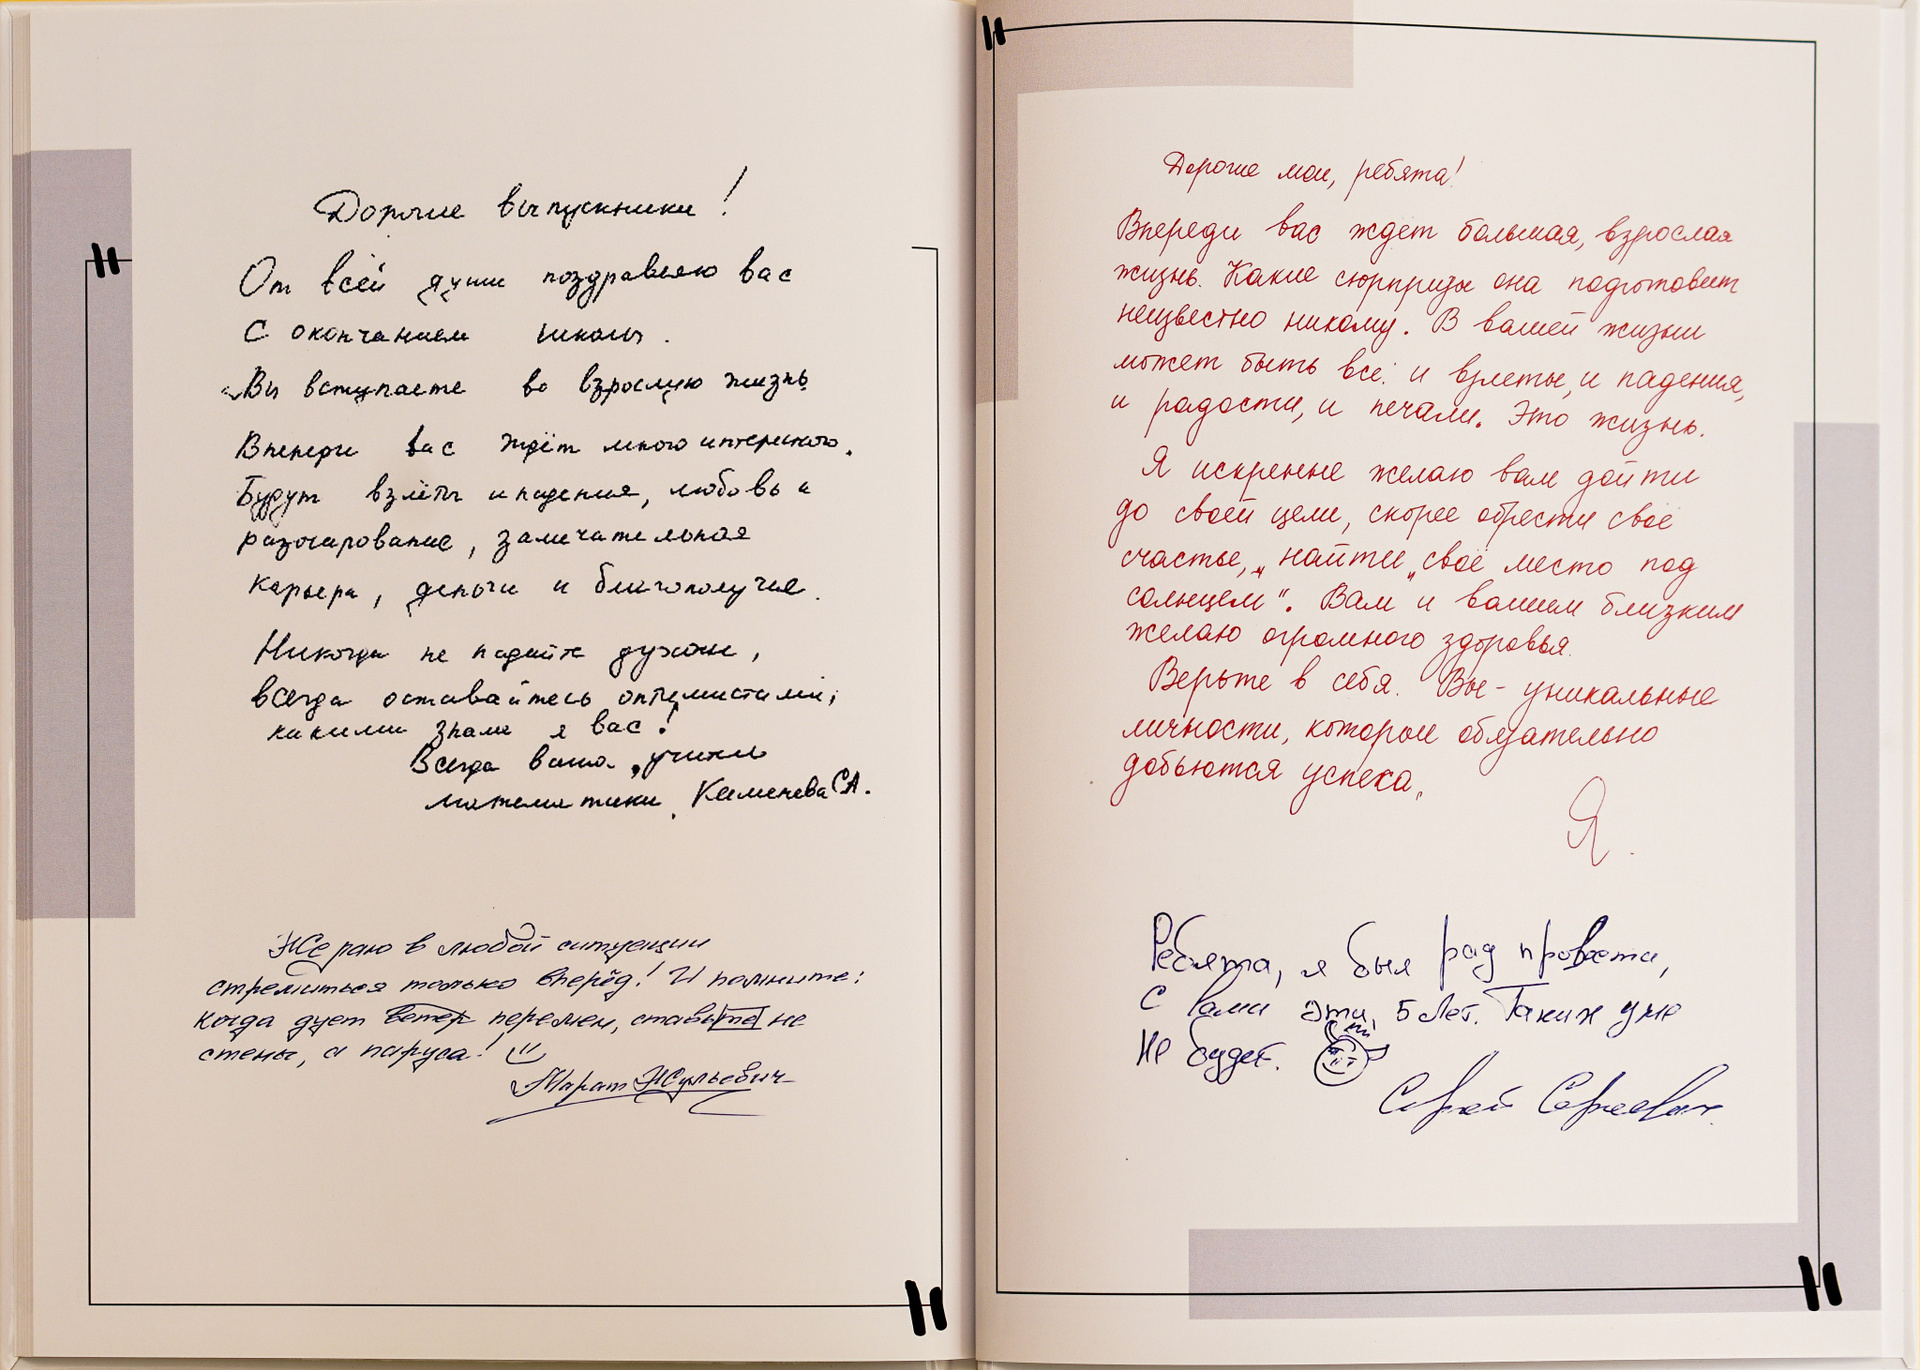 Дорогие выпускники!
От всей души поздравляю вас
с окончанием школы.
Вы вступаете во взрослую жизнь
Впереди вас ждёт много интересного.
Будут взлёты и падения, любовь и
разочарование, замечательная
карьера, деньги и благополучие.
Никогда не падайте духом,
всегда оставайтесь оптимистами,
какими знаю я вас!
Всегда ваша учитель
математики Каменева СА.
Желаю в любой ситуации
стремиться только вперёд! И помните:
когда дует ветер перемен, ставьте не
стены, а паруса!
Марат Жульевич
Дорогие мои, ребята!
Впереди вас ждёт большая, взрослая
жизнь. Какие сюрпризы она подготовит
неизвестно никому. В вашей жизни
может быть всё: и взлеты, и падения,
и радости, и печали. Это жизнь.
Я искренне желаю вам дойти
до своей цели, скорее обрести своё
счастье, найти „своё место под
солнцем“. Вам и вашим близким
желаю огромного здоровья.
Верьте в себя. Вы - уникальные
личности, которые обязательно
добьются успеха.
Я.
Ребята, я был рад провести,
с вами эти 5 лет. Таких уже
не будет.
Сергей Сергеевич